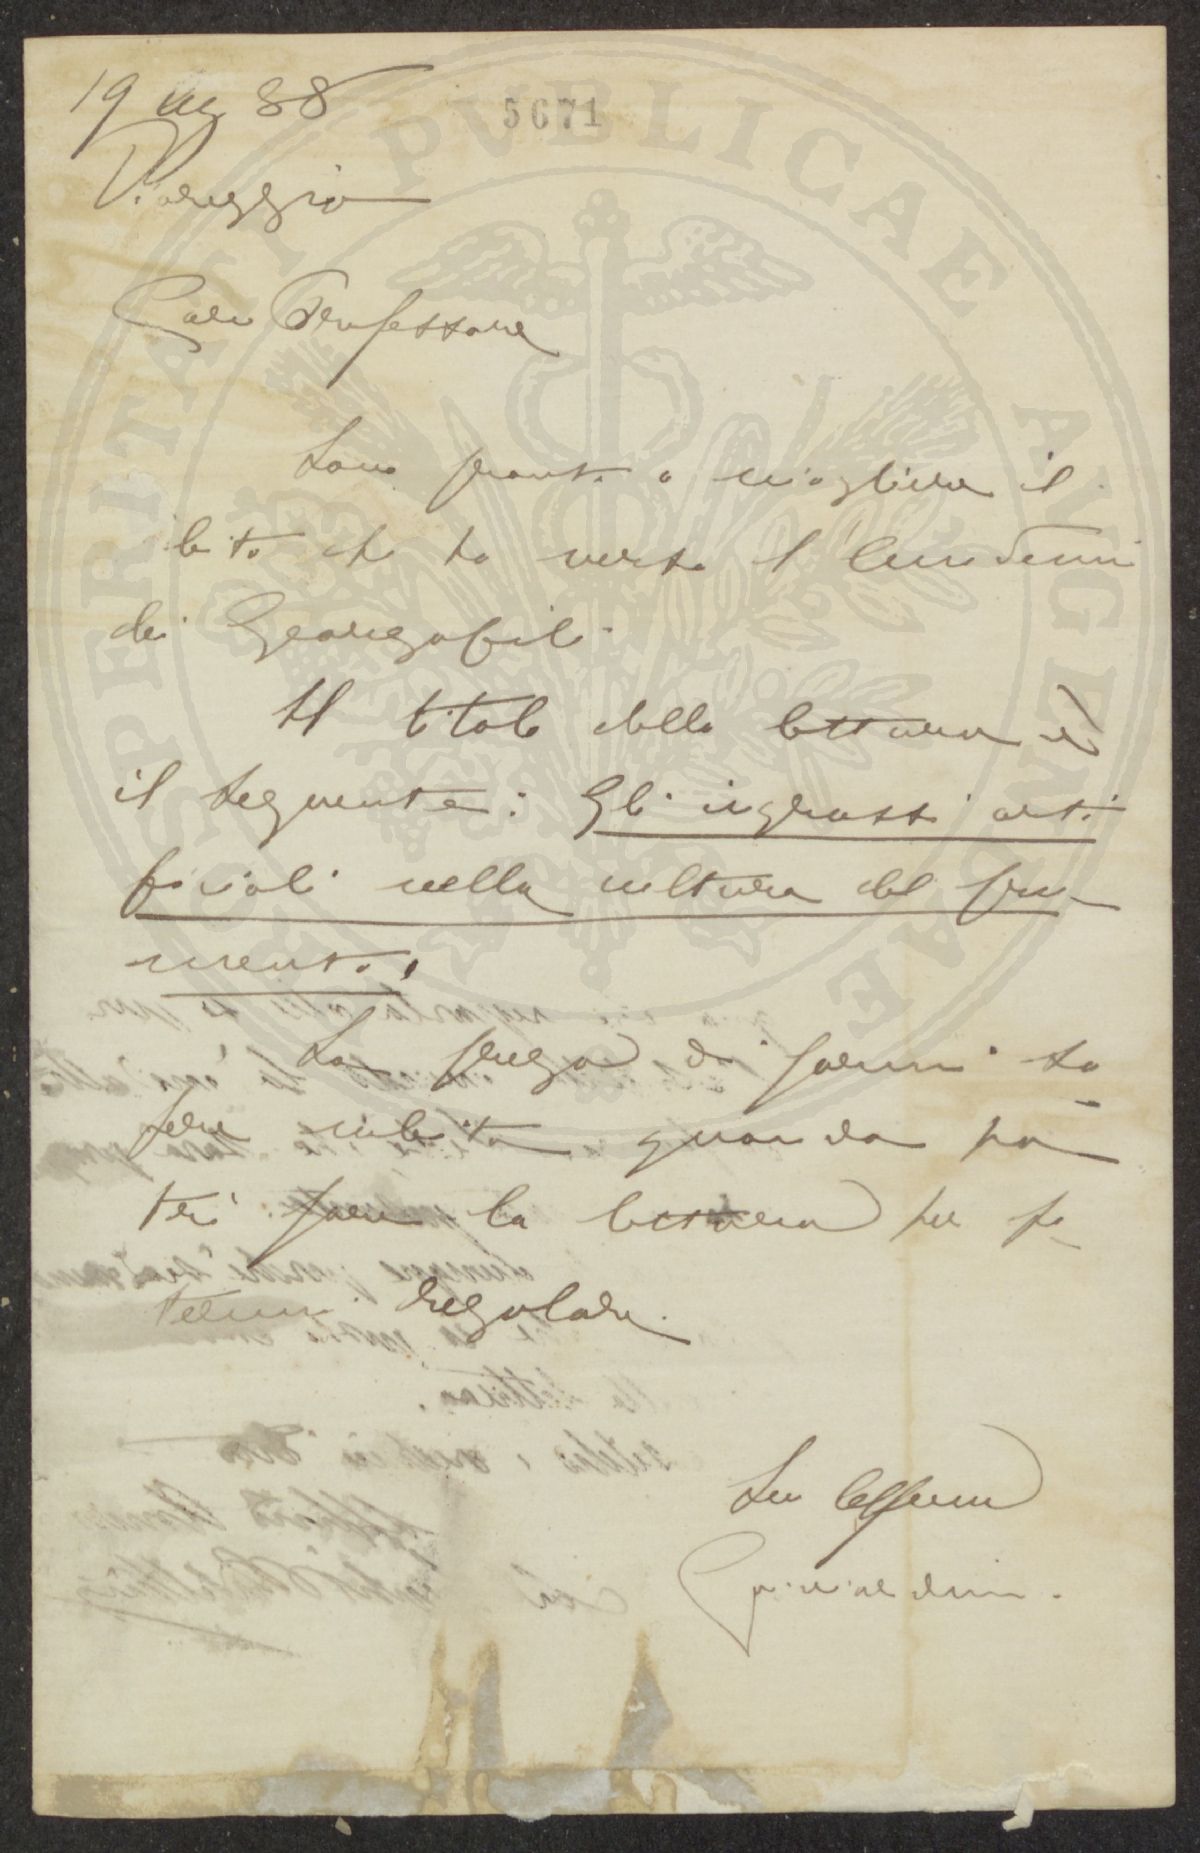 19 ag 88
5671
Viareggio
Caro Professore
Sono pronto a sciogliere il
bito che ho verso l'Accademia
dei Georgofili.
Il titolo della lettura è
il seguente: Gli ingrassi arti
ficiali nella cultura del fru-
mento.
La prego di farmi sa
pere subito quando po
trò fare la lettura per po
termi regolare.
Suo
PROSPERITATI PVBLICAE AVGENDAE